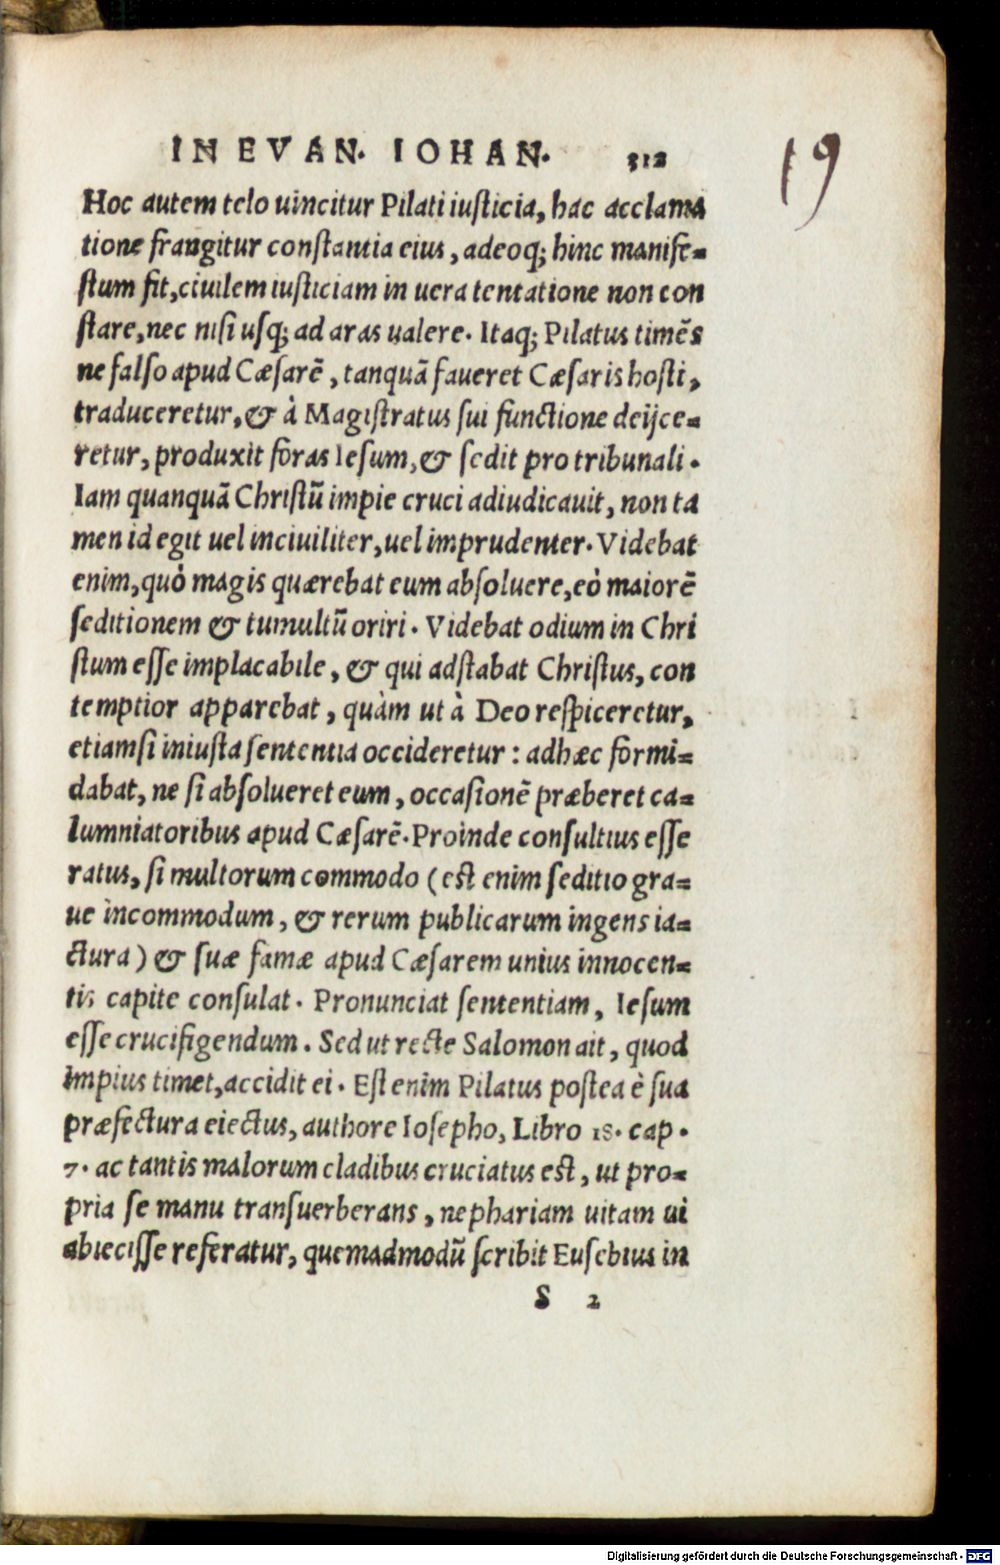 IN EVAN. IOHAN. 312
19
Hoc autem telo uincitur Pilati iusticia, hac acclama
tione frangitur constantia eius, adeoq; hinc manife=
stum fit, ciuilem iusticiam in uera tentatione non con
stare, nec nisi usq; ad aras ualere. Itaq; Pilatus timẽs
ne falso apud Cæsarẽ, tanquã faueret Cæsaris hosti,
traduceretur, & à Magistratus sui functione deijce=
retur, produxit foras Iesum, & sedit pro tribunali.
Iam quanquã Christũ impie cruci adiudicauit, non ta
men id egit uel inciuiliter, uel imprudenter. Videbat
enim, quò magis quærebat eum absoluere, eò maiorẽ
seditionem & tumultũ oriri. Videbat odium in Chri
stum esse implacabile, & qui adstabat Christus, con
temptior apparebat, quàm ut à Deo respiceretur,
etiamsi iniusta sententia occideretur: adhæc formi=
dabat, ne si absolueret eum, occasionẽ præberet ca=
lumniatoribus apud Cæsarẽ. Proinde consultius esse
ratus, si multorum commodo (est enim seditio gra=
ue incommodum, & rerum publicarum ingens ia=
ctura) & suæ famæ apud Cæsarem unius innocen=
tis capite consulat. Pronunciat sententiam, Iesum
esse crucifigendum. Sed ut recte Salomon ait, quod
impius timet, accidit ei. Est enim Pilatus postea è sua
præfectura eiectus, authore Iosepho, Libro 18. cap.
7. ac tantis malorum cladibus cruciatus est, ut pro=
pria se manu transuerberans, nephariam uitam ui
abiecisse referatur, quemadmodũ scribit Eusebius in
S 2
Digitalisierung gefördert durch die Deutsche Forschungsgemeinschaft - DFG